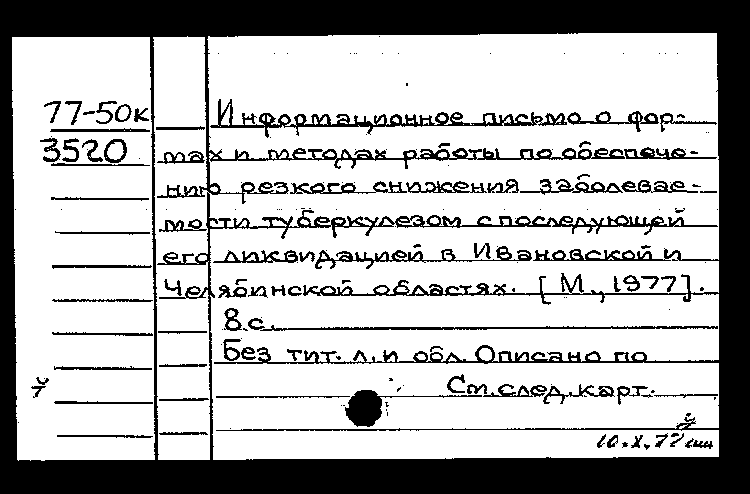 77-50к Информационное письмо о фор-
3520 мах и методах работы по обеспече-
нию резкого снижения заболевае-
мости туберкулезом с последующей
его ликвидацией в Ивановской и
Челябинской областях. [М., 1977].
8 с.
Без тит. л. и обл. Описано по
См. след. карт.
10.X.77